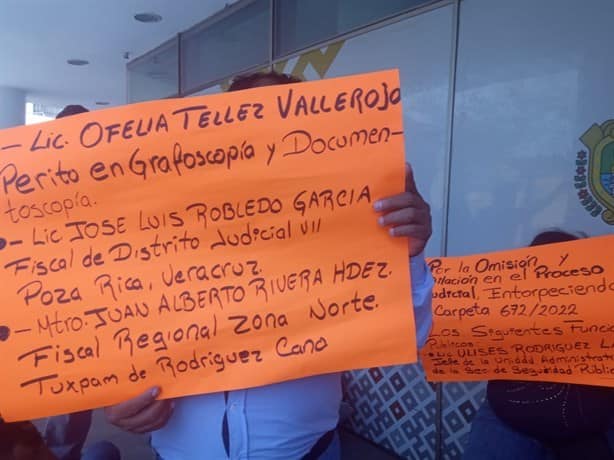 - Lic. OFELIA TELLEZ VALLEROJO
Perito en Grafoscopía y Documen-
toscopía.
- Lic JOSE LUIS ROBLEDO GARCIA
Fiscal de Distrito Judicial VII
Poza Rica, Veracruz.
- Mtro. JUAN ALBERTO RIVERA HDEZ.
Fiscal Regional Zona Norte.
Tuxpam de Rodriguez Cano
Por la Omisión y
en el Proceso
Entorpeciendo
Carpeta 672/2022
Los Siguientes
Públicos
Lic ULISES RODRIGUEZ
Jefe de la Unidad
de la Sec de Seguridad